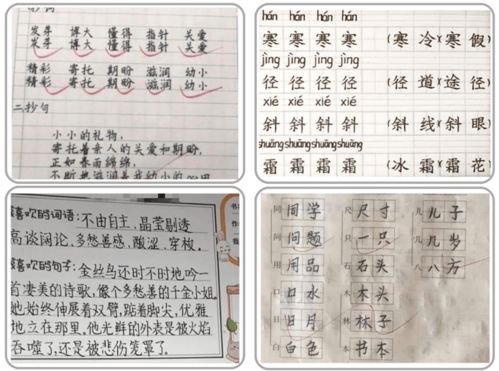 抄词
发芽 博大 懂得 指针 关爱
发芽 博大 懂得 指针 关爱
精彩 寄托 期盼 滋润 幼小
精彩 寄托 期盼 滋润 幼小
二抄句
小小的礼物,
寄托着亲人的关爱和期盼,
正如春雨绵绵,
hán hán hán hán
寒 寒 寒 寒 (寒 冷)(寒 假)
jìng jìng jìng jìng
径 径 径 径 (径 道)(途 径)
xié xié xié xié
斜 斜 斜 斜 (斜 线)(斜 眼)
shuāng shuāng shuāng shuāng
霜 霜 霜 霜 (冰 霜)(霜 花)
喜欢的词语: 不由自主、晶莹剔透
高谈阔论、多愁善感、酸涩、穿梭。
喜欢的句子: 金丝鸟还时不时地吟一
首凄美的诗歌,像个多愁善的千金小姐。
她始终伸展着双臂,踮着脚尖,优雅
地立在那里,他光鲜的外表是被火焰
吞噬了,还是被悲伤笼罩了。
同 同学 尺 尺寸 儿 儿子
问 问题 只 一只 几 几岁
用 用品 石 石头 八 八方
口 口水 木 木头
日 日月 林 林子
白 白色 本 书本